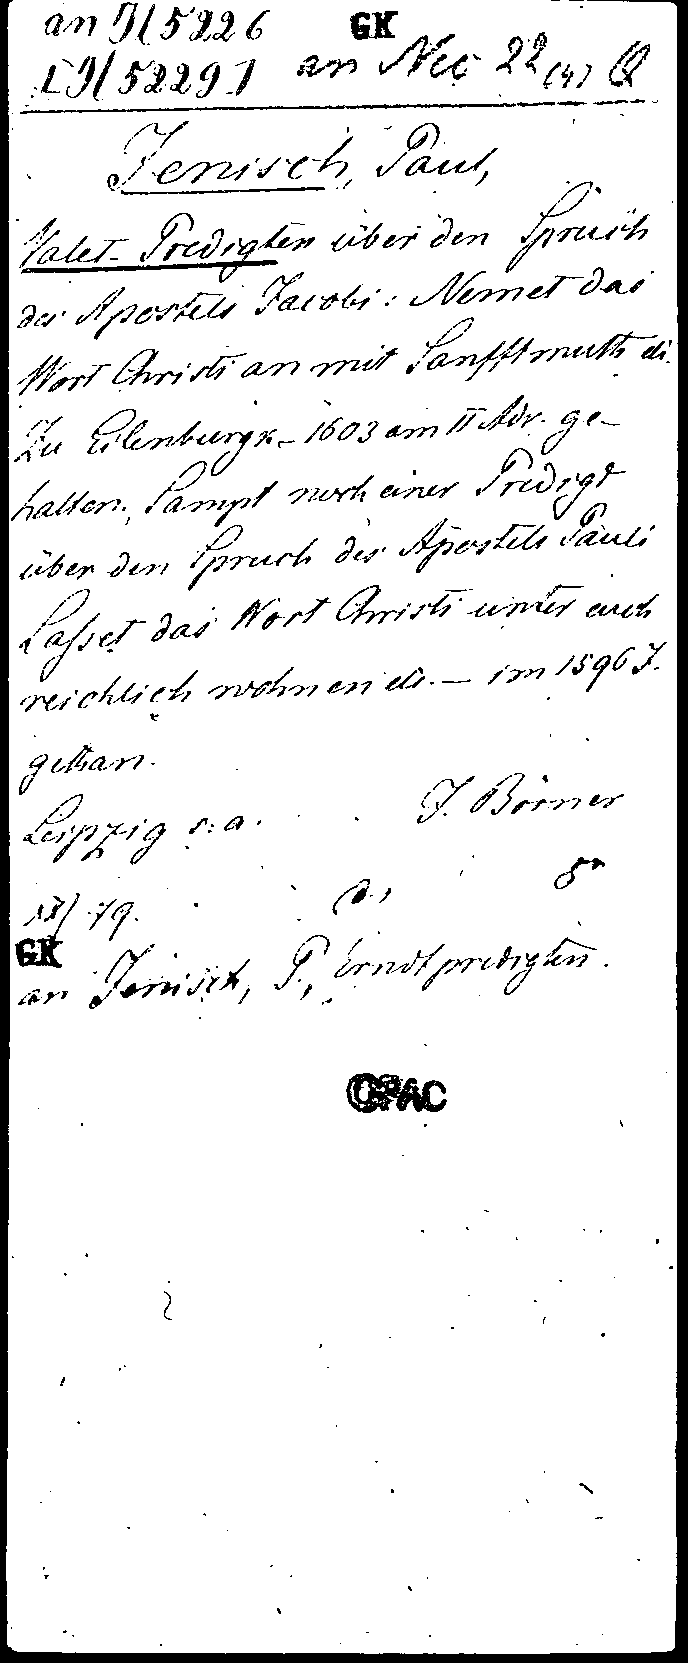 an J/5226 GK
[J/5229] an Nec 22 (4)
Jenisch, Paul,
Valet-Predigten über den Spruch
des Apostels Jacobi: Nemet das
Wort Christi an mit Sanfftmuth etc.
Zu Eilenburgk - 1603 am II Adv. ge-
halten. Sampt noch einer Predigt
über den Spruch des Apostels Pauli
Lasset das Wort Christi unter euch
reichlich wohnen etc. - im 1596 J.
gethan.
Leipzig s. a. J. Börner
19. 8°
GK
an Jenisch, P., Erndtpredigten.
OPAC